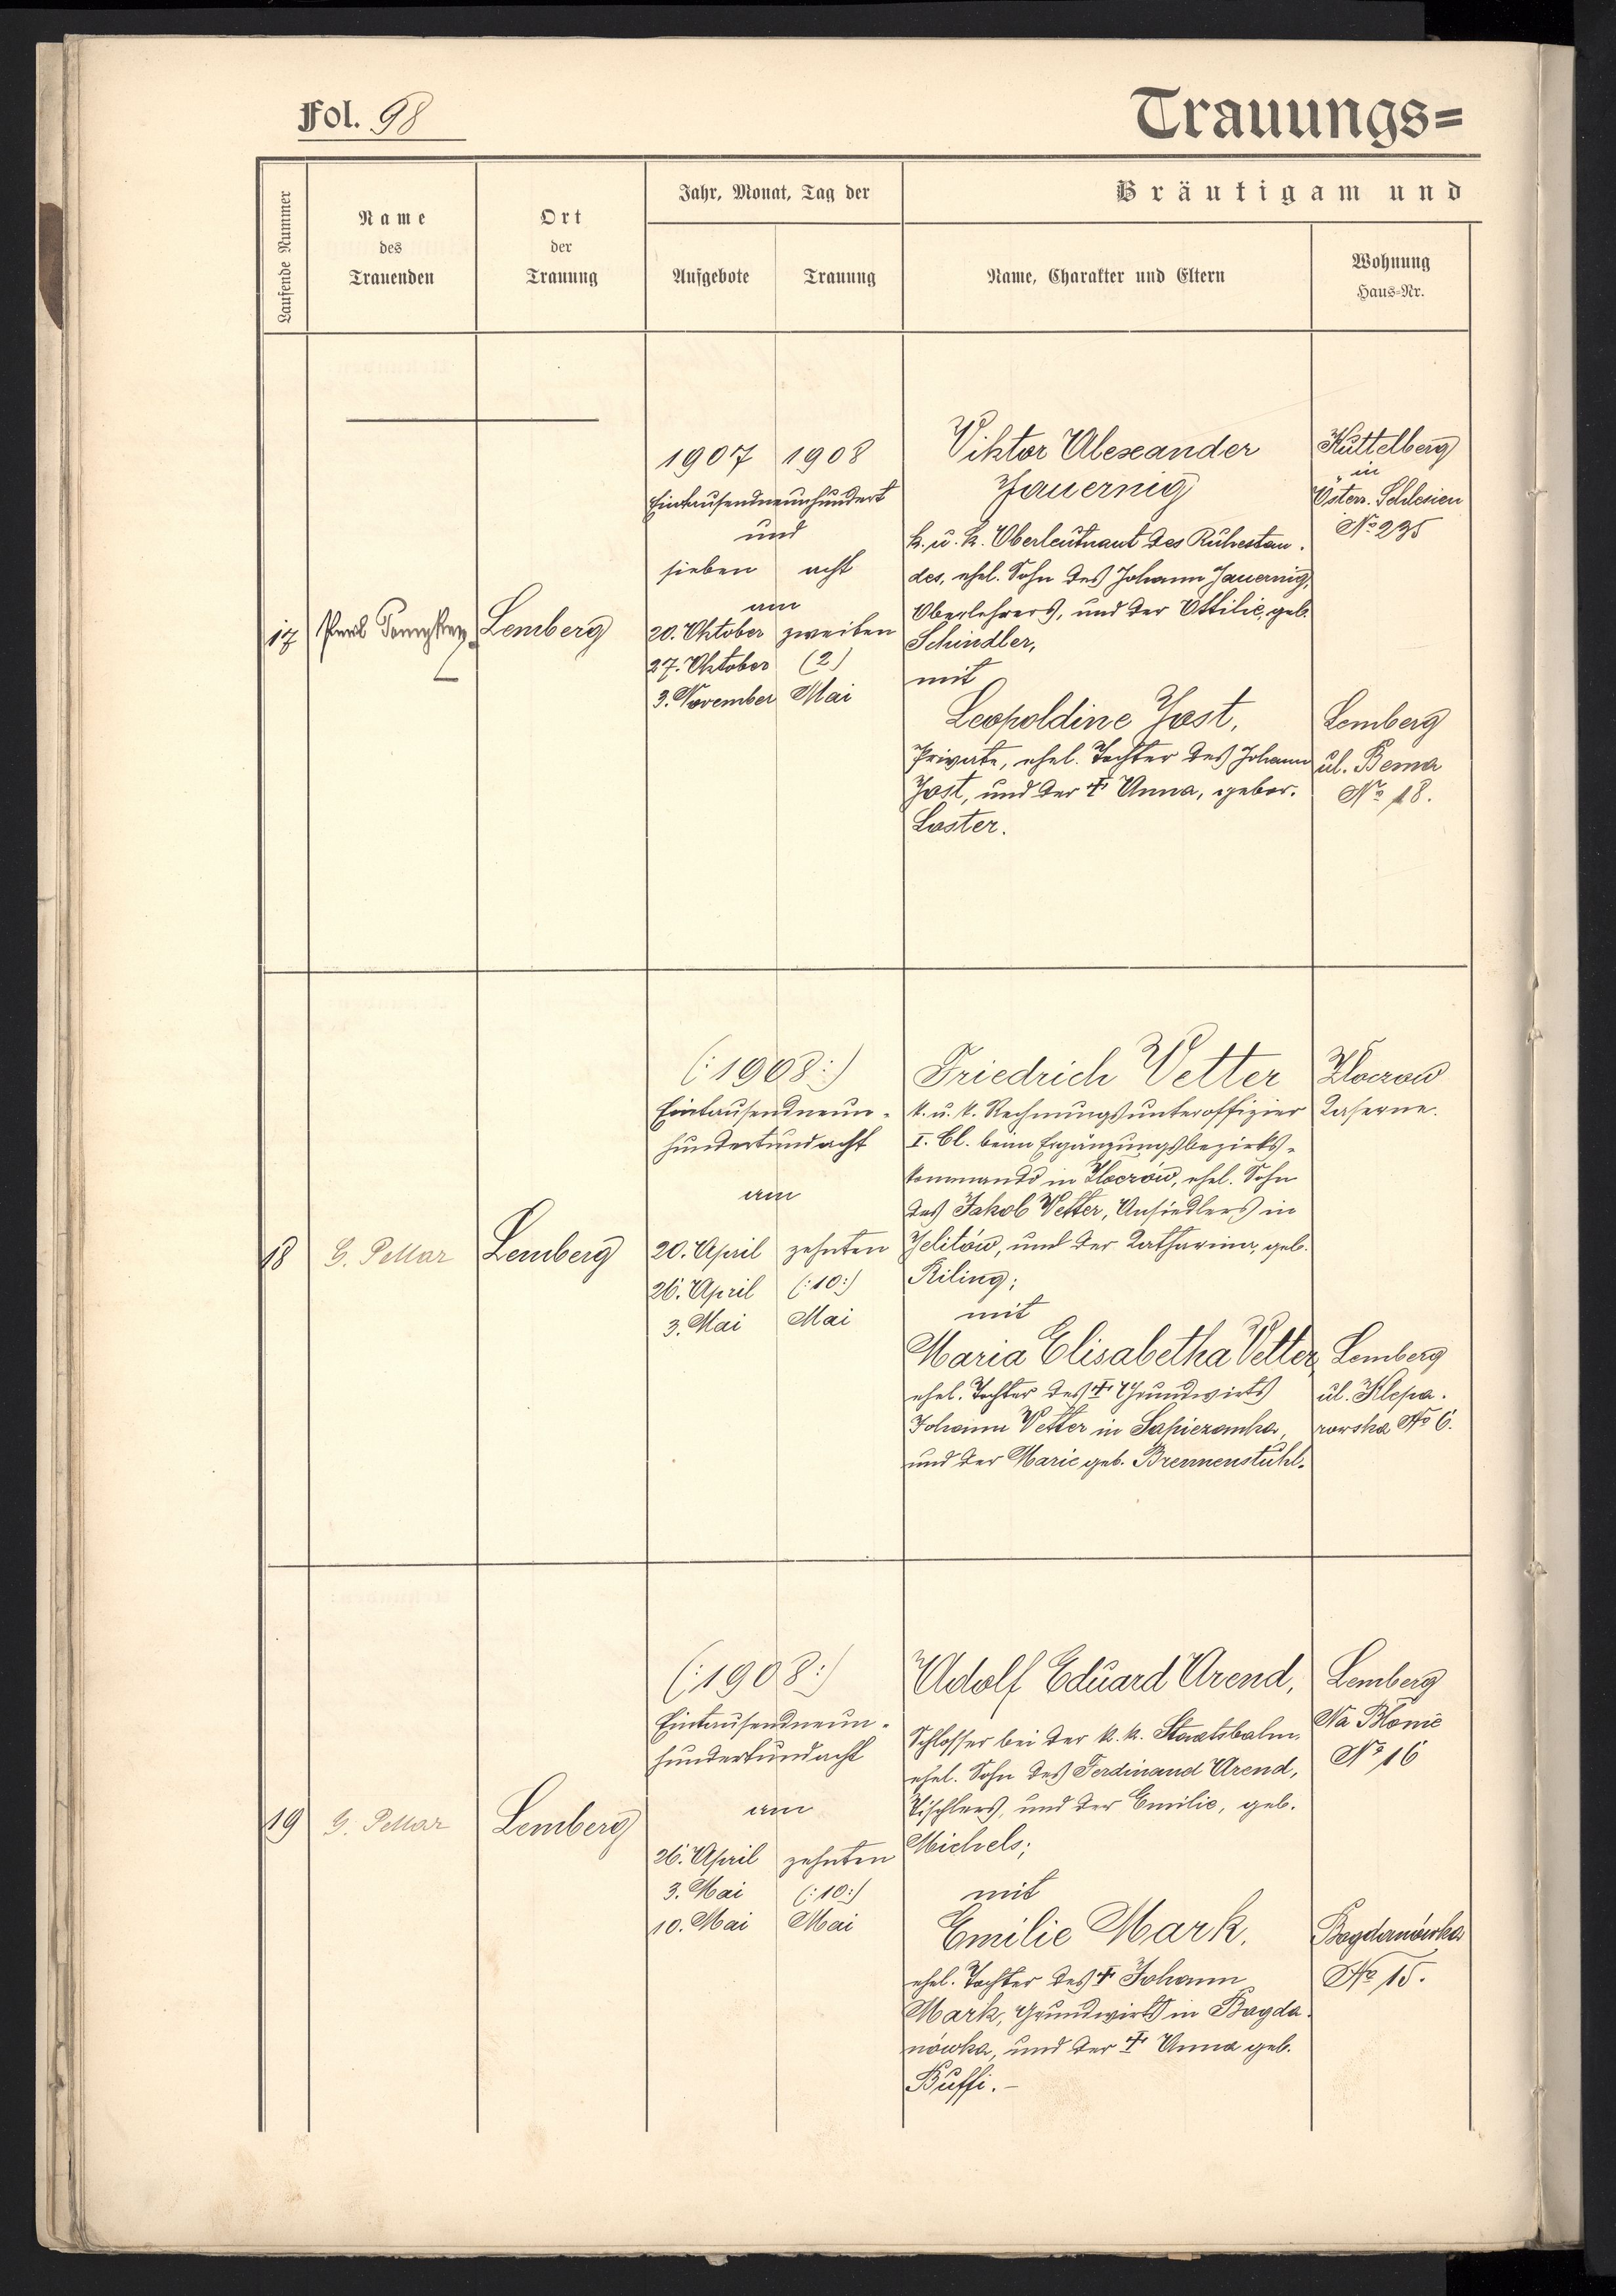 Fol. 98
Trauungs=
Laufende Nummer
Name
des
Trauenden
Ort
der
Trauung
Jahr, Monat, Tag der
Aufgebote
Trauung
Bräutigam und
Name, Charakter und Eltern
Wohnung
Haus-Nr.
17
Lemberg
1907 1908
Eintausendneunhundert
und
sieben acht
am
20. Oktober zweiten
27. Oktober (2)
3. November Mai
Viktor Alexander
Jauernig
k. u. k. Oberleutnant des Ruhestan-
des, ehel. Sohn des Johann Jauernig,
Oberlehrers, und der Ottilie, geb.
Schindler,
mit
Leopoldine Jost,
Private, ehel. Tochter des Johann
Jost, und der † Anna, gebor.
Laster.
Kuttelberg
in
Österr. Schlesien
No 235
Lemberg
ul. Bema
No 18.
18
G. Pellar
Lemberg
(:1908:)
Eintausendneun-
hundertundacht
am
20. April zehnten
26. April (:10:)
3. Mai Mai
Friedrich Vetter
k. u. k. Rechnungsunteroffizier
I. Cl. beim Ergänzungsbezirks-
kommando in Złoczów, ehel. Sohn
des Jakob Vetter, Ansiedlers in
Jelitów, und der Katharina, geb.
Riling;
mit
Maria Elisabetha Vetter,
ehel. Tochter des † Grundwirts
Johann Vetter in Sapiezanka,
und der Marie geb. Brennenstuhl.
Złoczow
Kaserne.
Lemberg
ul. Klepa-
rowska No 6.
19
G. Pellar
Lemberg
(:1908:)
Eintausendneun-
hundertundacht
am
26. April zehnten
3. Mai (:10:)
10. Mai Mai
Adolf Eduard Arend,
Schlosser bei der k. k. Staatsbahn,
ehel. Sohn des Ferdinand Arend,
Tischlers, und der Emilie, geb.
Michels;
mit
Emilie Mark,
ehel. Tochter des † Johann
Mark, Grundwirts in Bogda-
nówka, und der † Anna geb.
Buffi. –
Lemberg
Na Błonie
No 16
Bogdanówka
No 15.